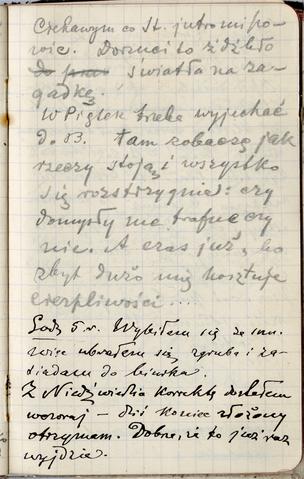 Ciekawym co St. jutro mi po-
wie. Dorzuci to źdźbło
światła na za-
gadkę.
W Piątek trzeba wyjechać
do B. Tam zobaczę jak
rzeczy stoją i wszystko
się rozstrzygnie: czy
domysły me trafne czy
nie. A czas już, bo
zbyt dużo mię kosztuje
cierpliwości ....
Godz 5 r. Wybiłem się ze snu
więc ubrałem się zgruba i za-
siadam do biurka.
Z Niedźwiedzia korektę dostałem
wczoraj – dziś koniec złożony
otrzymam. Dobrze, że to już raz
wyjdzie.